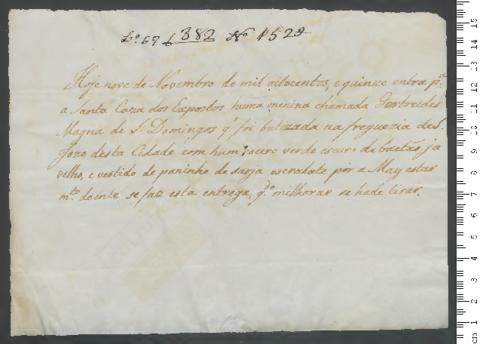 Lº 67 f 382 Nº 1529
Hoje nove de Novembro de mil oitocentos, e quinze entra pª
a Santa Caza dos Expostos huma menina chamada Gertrudes
Magna de S. Domingos q foi batizada na freguezia de S.
Joze desta Cidade com hum, acero verde escuro de baetas já
velho, e vestido de paninho de sarja escarlate por a May estar
mto. doente se faz esta entrega, qdo milhorar se hade tirar.